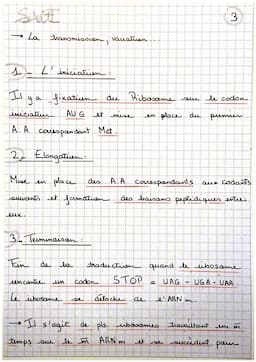 Suite
3
→ La transmission, variation...
1_ L'iniciation:
Il y a fixation du Ribosome sur le codon
iniciateur AUG et mise en place du premier
A.A correspondant Met.
2_ Elongation:
Mise en place des A.A correspondants aux codants
suivants et formation des liaisons peptidiques entre
eux.
3_ Terminaison:
Fin de la traduction quand le ribosome
rencontre un codon STOP = UAG - UGA - UAA
Le ribosome se détache de l'ARNm
→ Il s'agit de pls ribosomes travaillant en m̂
temps sur le m̂ ARNm et se succèdent pour